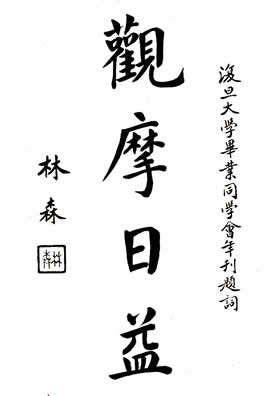 復旦大学畢業同学會年刊題詞
觀摩日益
林森
林森